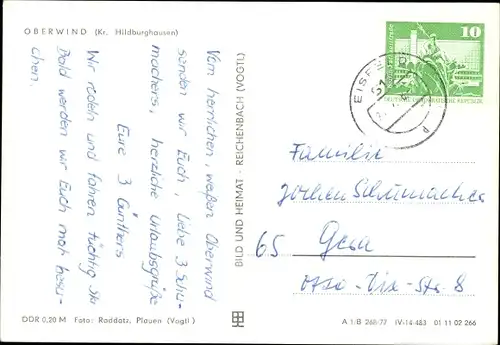 OBERWIND (Kr. Hildburghausen)
Vom herrlichen, weißen Oberwind
senden wir Euch, liebe 3 Schu-
machers, herzliche Urlaubsgrüße
Eure 3 Günthers
Wir rodeln und fahren tüchtig Ski
Bald werden wir Euch mal besu-
chen.
BILD UND HEIMAT · REICHENBACH (VOGTL)
10
DEUTSCHE DEMOKRATISCHE REPUBLIK
Familie
Jochen Schumacher
65 Gera
Otto-Dix-Str. 8
DDR 0,20 M Foto: Raddatz, Plauen (Vogtl.)
A 1/B 268-77 IV-14-483 01 11 02 266